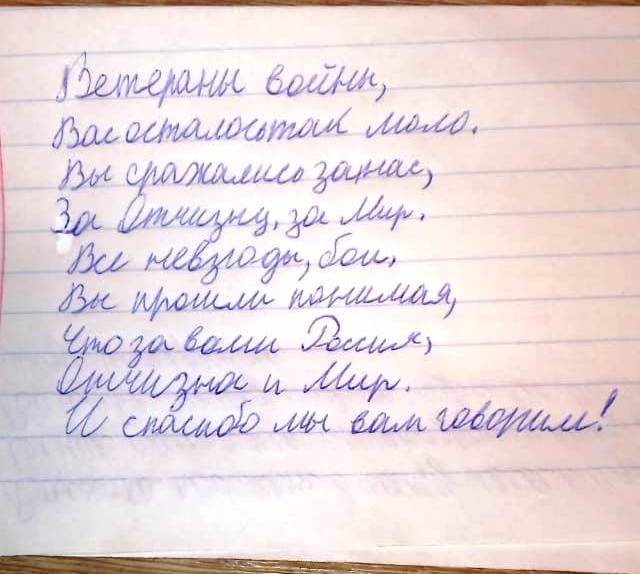 Ветераны войны,
Вас осталось так мало.
Вы сражались за нас,
За Отчизну, за Мир.
Все невзгоды, бои,
Вы прошли понимая,
Что за вами Россия,
Отчизна и Мир.
И спасибо мы вам говорим!